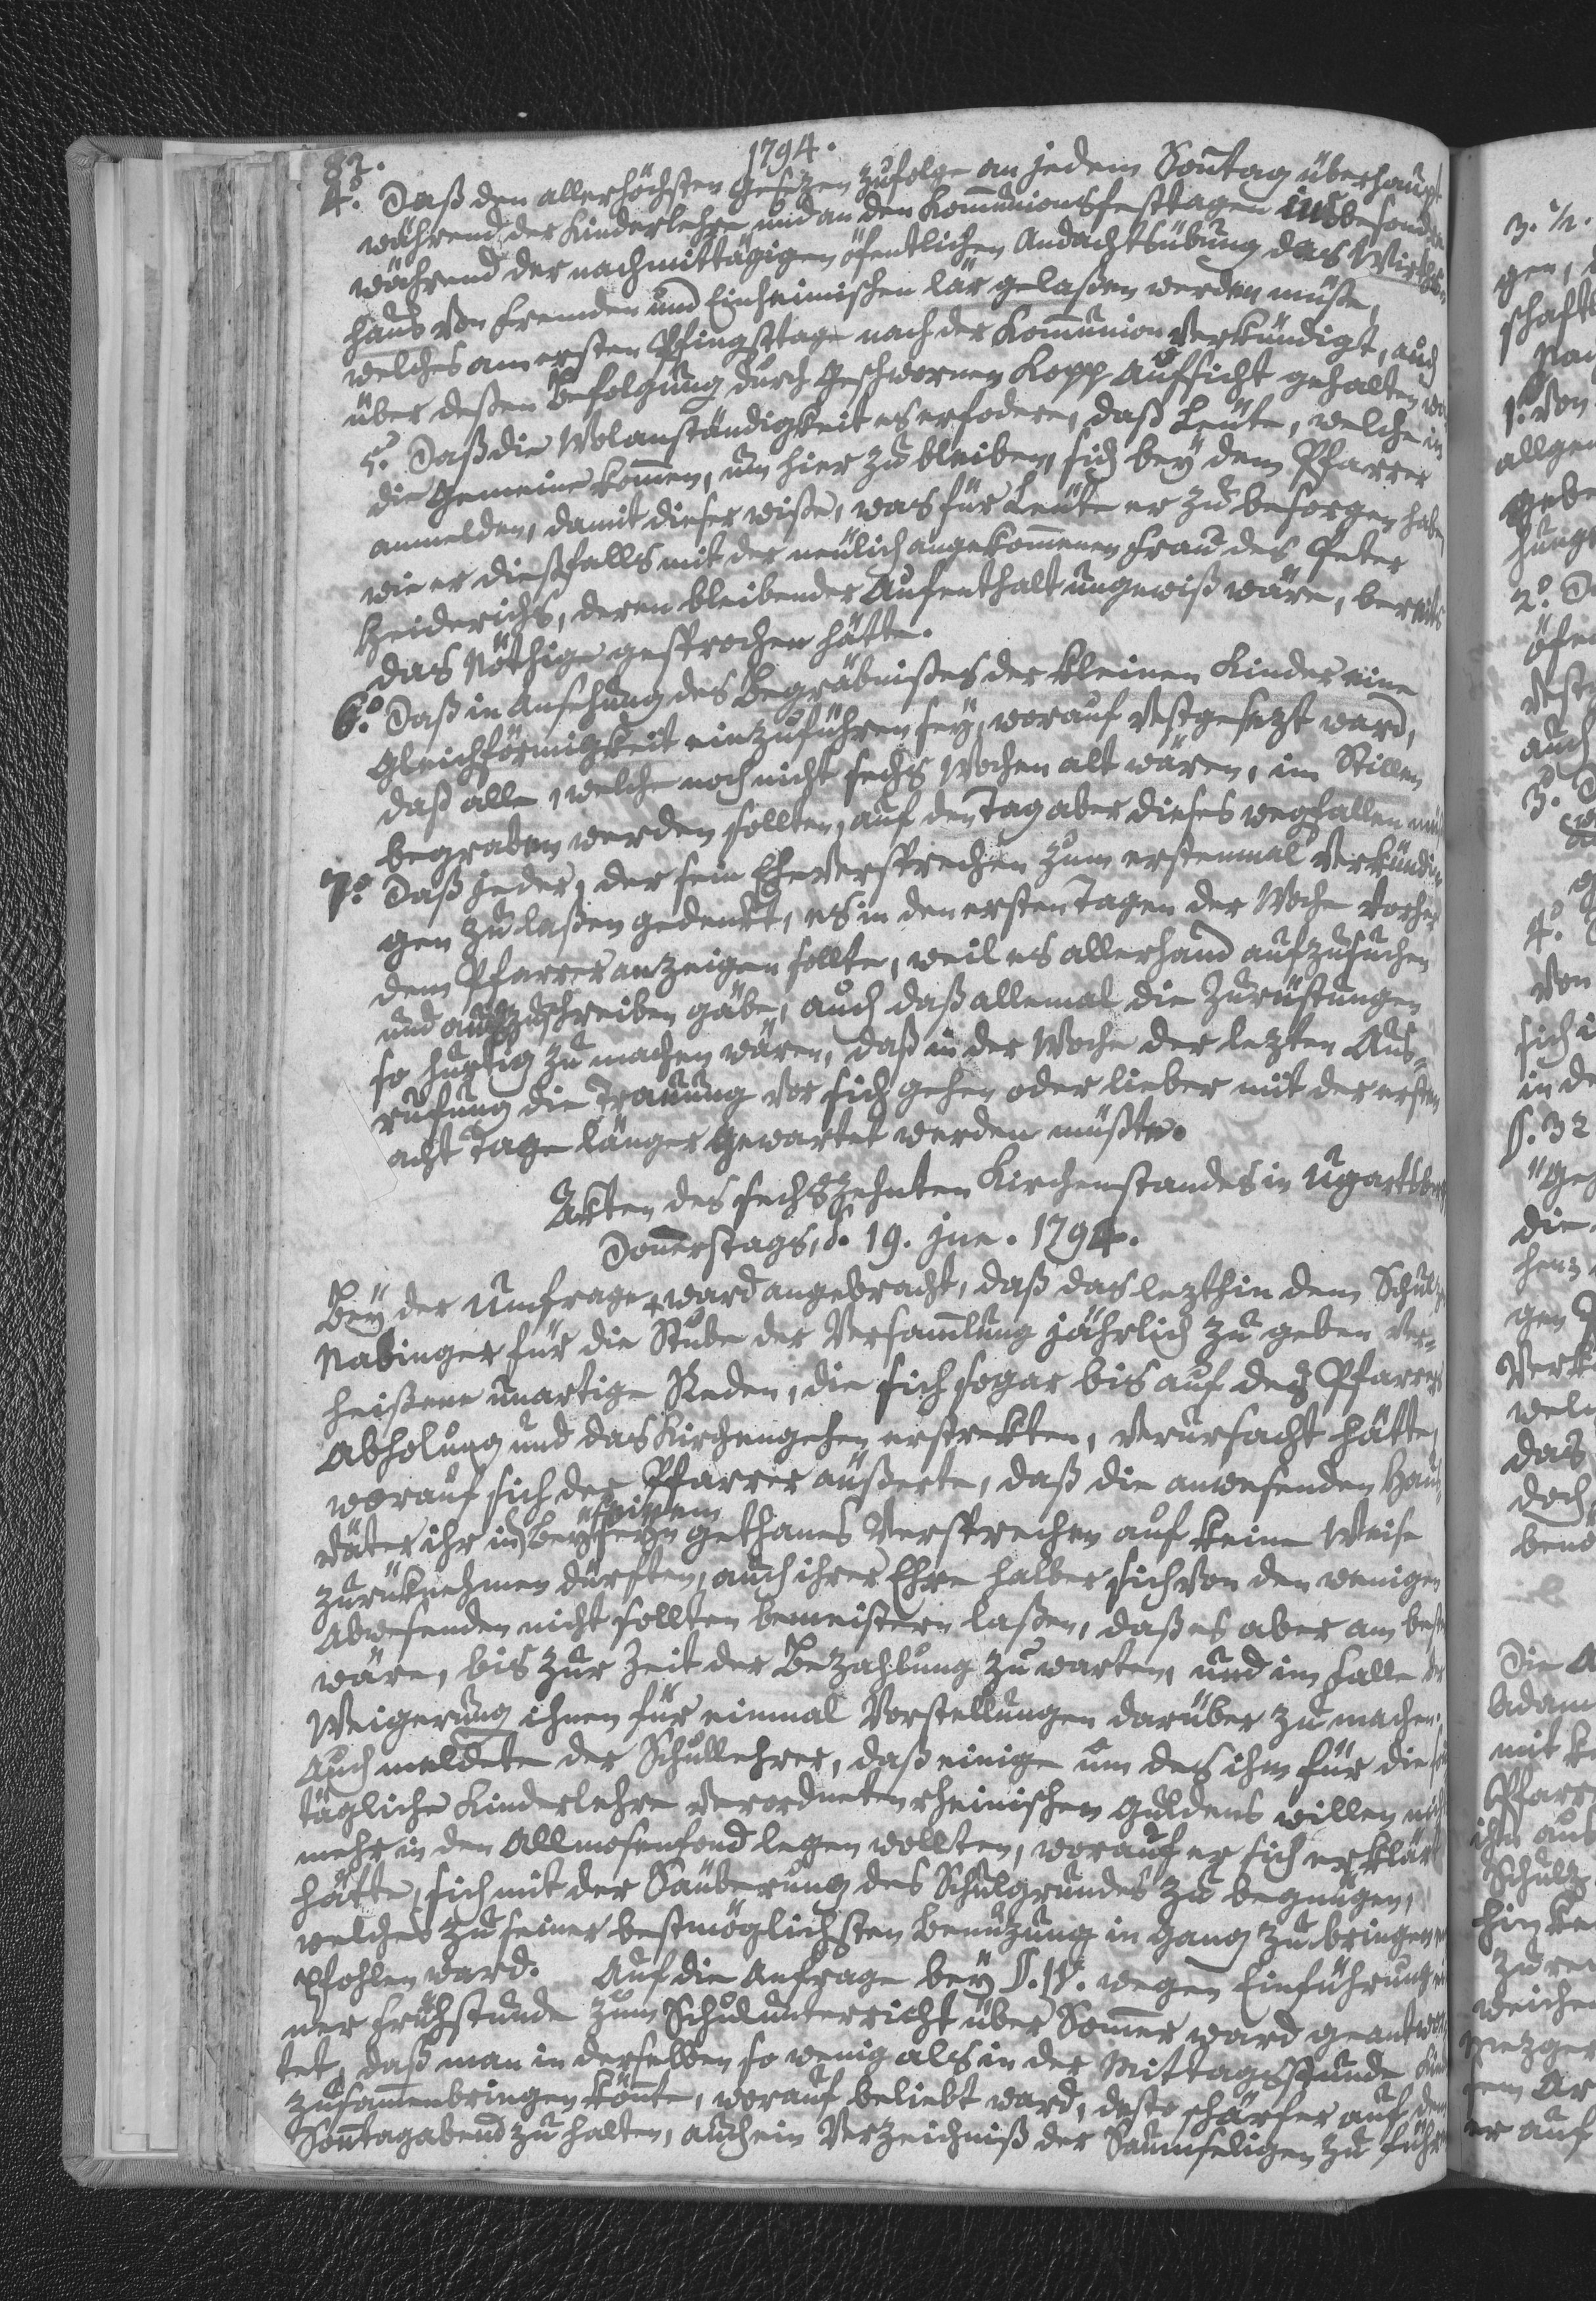 82.
1794.
4.° Daß den allerhöchsten Gesezen zufolge an jedem Sontag überhaupt
während der Kinderlehre und an den Kommunionsfesttagen insbesondre
während der nachmittägigen öfentlichen Andachtsübung das Wirths-
haus von Fremden und Einheimischen lär gelaßen werden müße,
welches am ersten Pfingsttage nach der Kommunion verkündigt, auch
über deßen Befolgung durch Geschwornen Kopp Aufsicht gehalten
5.° Daß die Wolanständigkeit es erfodere, daß Leüte, welche in
die Gemeine kommen, um hier zu bleiben, sich bey dem Pfarrer
anmelden, damit dieser wiße, was für Leüte er zu besorgen habe,
wie er dießfalls mit der neülich angekommenen Frau des Peter
Heiderichs, deren bleibender Aufenthalt ungewiß wäre, bereits
das Nöthige gesprochen hätte.
6.° Daß in Ansehung des Begräbnißes der kleinen Kinder eine
Gleichförmigkeit einzuführen sey, worauf vestgesezt ward,
daß alle, welche noch nicht sechs Wochen alt wären, im Stillen
begraben werden sollten, auf den Tag aber dieses wegfallen
7.° Daß jeder, der sein Eheversprechen zum erstenmal verkündi-
gen zu laßen gedenkt, es in den ersten Tagen der Woche vorher
dem Pfarrer anzeigen sollte, weil es allerhand aufzusuchen
und aufzuschreiben gäbe, auch daß allemal die Zurüstungen
so hurtig zu machen wären, daß in der Woche der lezten Aus-
rufung die Trauung vor sich gehen oder lieber mit der ersten
acht Tage länger gewartet werden müßte.
Akten des sechszehnten Kirchenstandes in Ugartsberg
Donnerstags, d. 19. Jun. 1794.
Bey der Umfrage ward angebracht, daß das lezthin dem Schulz
Nabinger für die Stube der Versammlung jährlich zu geben ver-
heißene unartige Reden, die sich sogar bis auf des Pfarrers
Abholung und das Kirchengehen erstrekten, verursacht hätte,
worauf sich der Pfarrer äußerte, daß die anwesenden Haus-
väter ihr in seinem Beyseyn gethanes Versprechen auf keine Weise
zurüknehmen dürften, auch ihrer Ehre halber sich von den wenigen
Abwesenden nicht sollten bemeistern laßen, daß es aber am besten
wäre, bis zur Zeit der Bezahlung zu warten, und im Falle der
Weigerung ihnen für einmal Vorstellungen darüber zu machen.
Auch meldete der Schullehrer, daß einige um des ihm für die
tägliche Kinderlehre verordneten rheinischen Guldens willen nicht
mehr in den Allmosenfond legen wollten, worauf er sich erklärt
hätte, sich mit der Säuberung des Schulgrundes zu begnügen,
welches zu seiner bestmöglichsten Benuzung in Gang zu bringen
pfohlen ward. Auf die Anfrage bey wegen Einführung ei-
ner Frühstunde zum Schulunterricht über Sommer ward geantwor-
tet, daß man in derselben so wenig als in der Mittagsstunde
zusammenbringen könnte, worauf beliebt ward, desto schärfer auf den
Sontagabend zu halten, auch ein Verzeichniß der Saumseligen zu führen